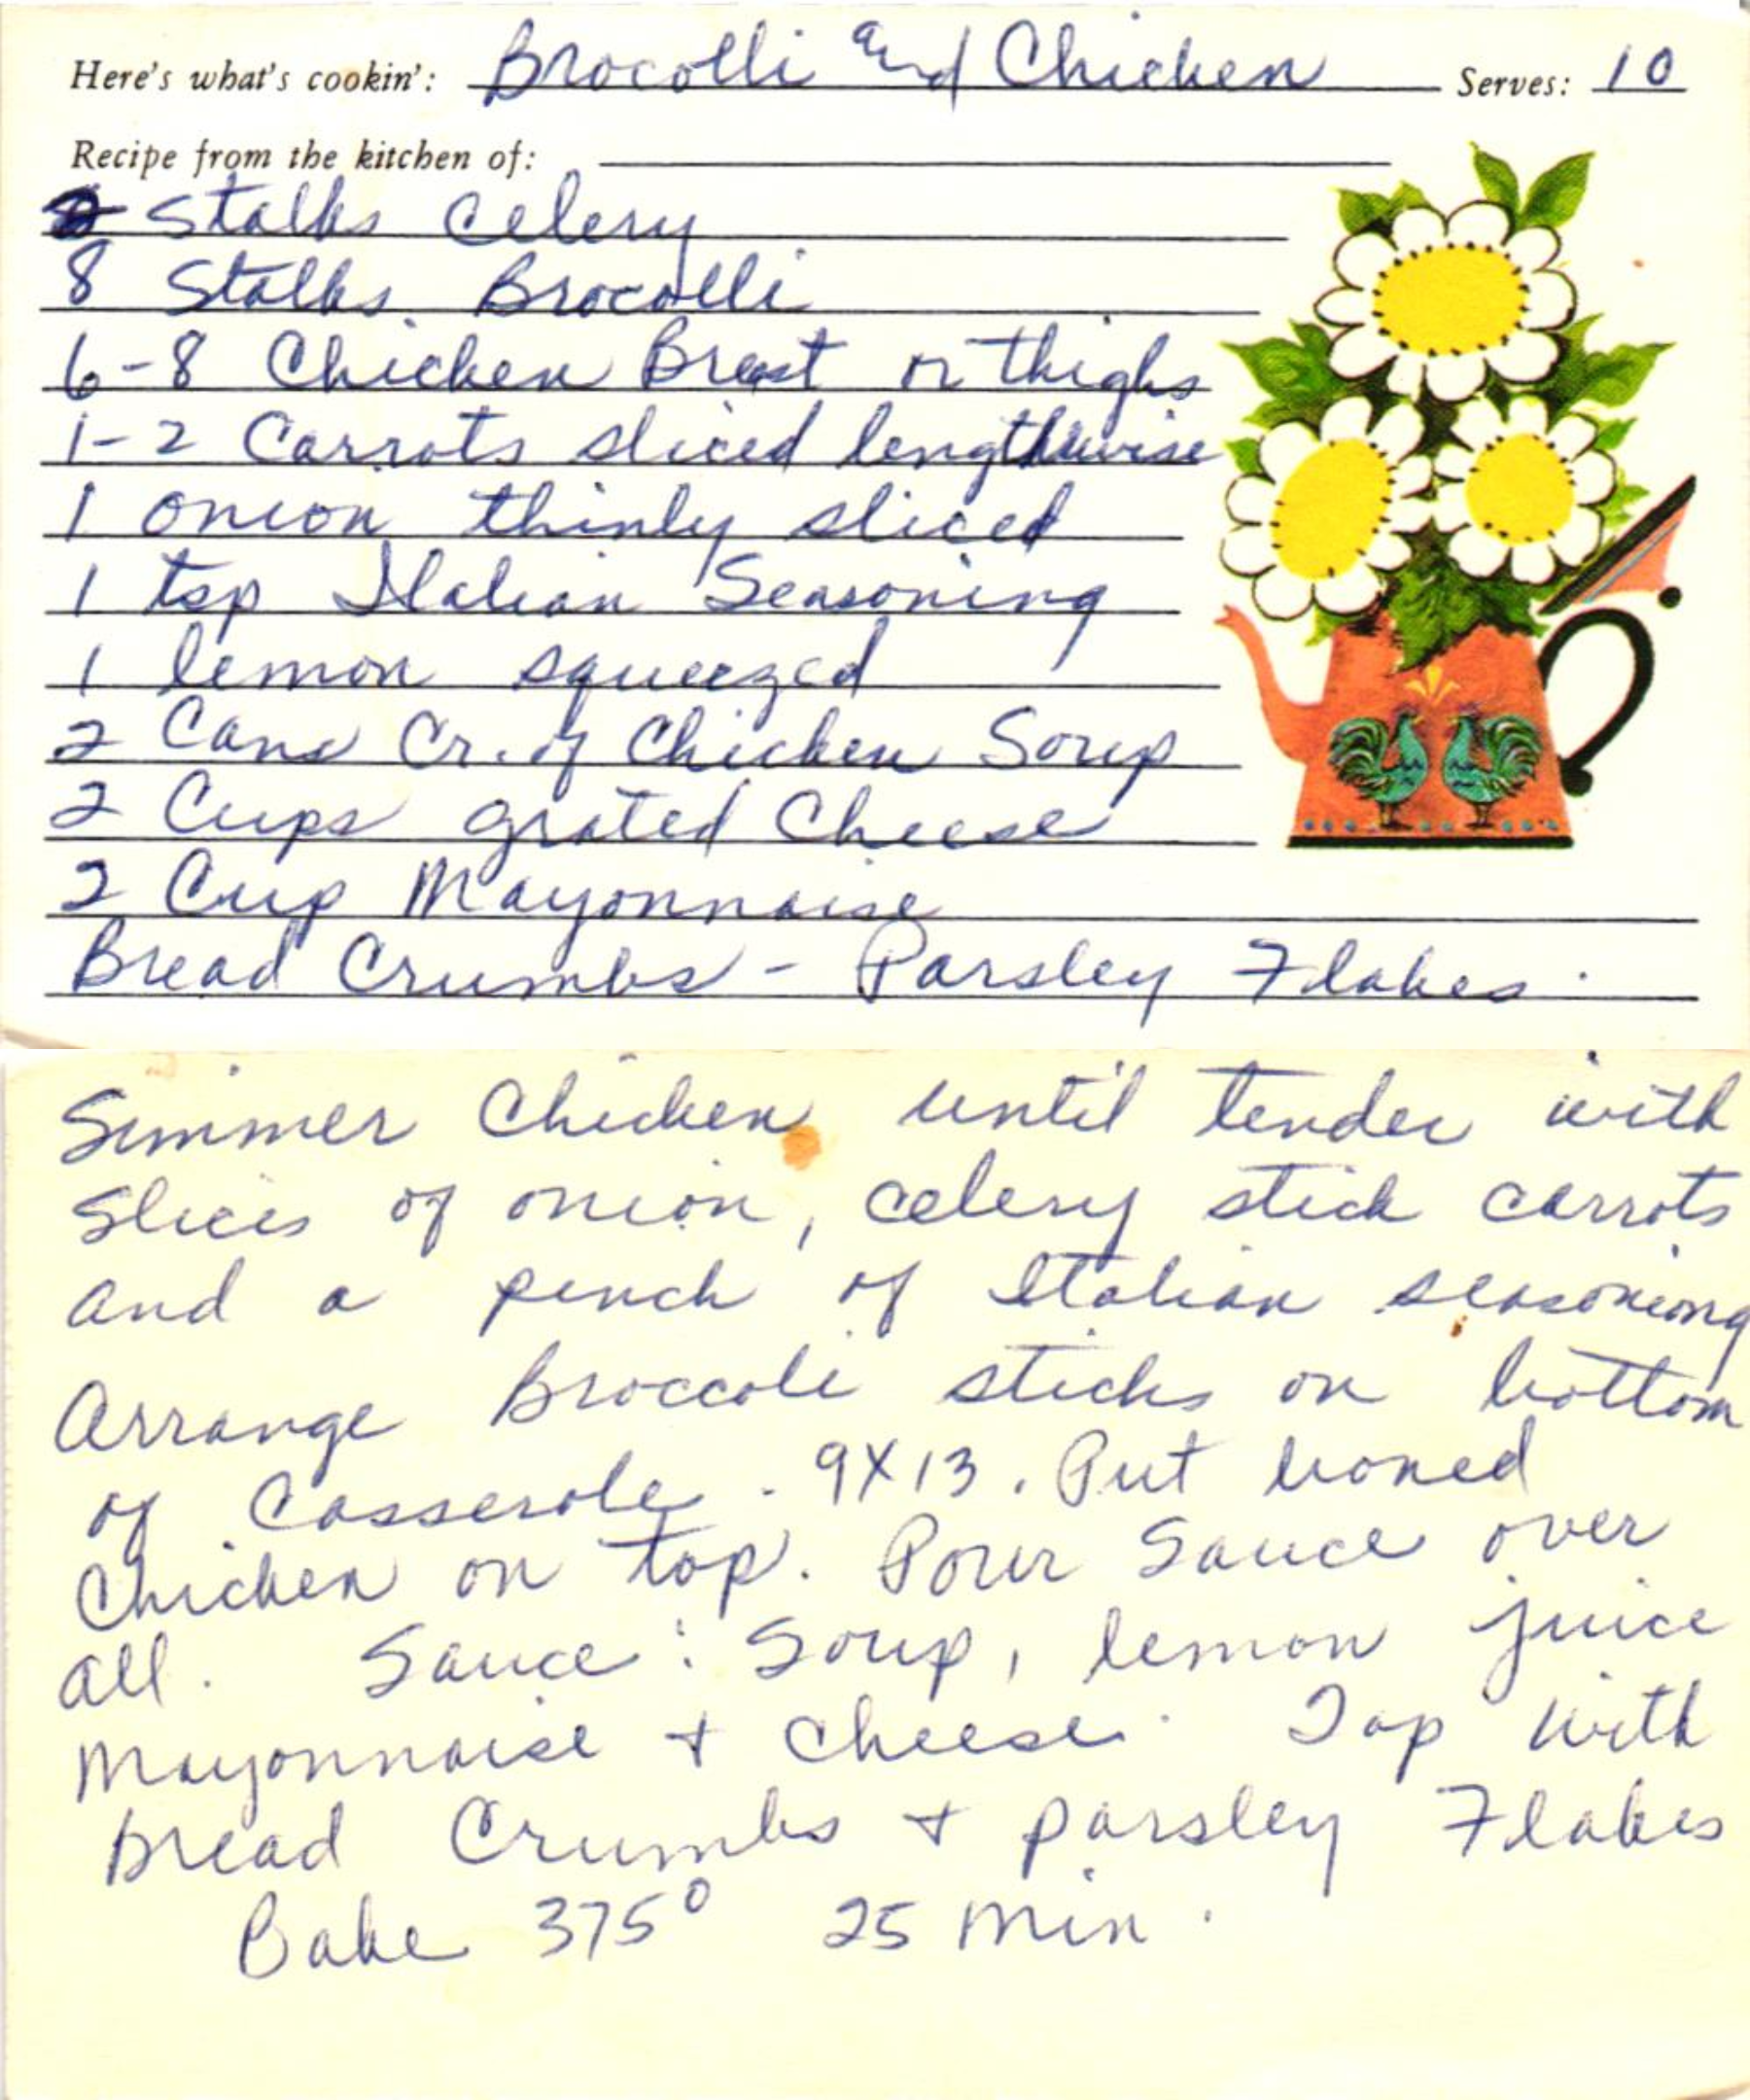 Here's what's cookin': Brocolli and Chicken Serves: 10
Recipe from the kitchen of:
Stalks Celery
8 Stalks Brocolli
6-8 Chicken Breast or thighs
1-2 Carrots sliced lengthwise
1 onion thinly sliced
1 tsp Italian Seasoning
1 lemon squeezed
2 Cans Cr. of Chicken Soup
2 Cups grated Cheese
2 Cup Mayonnaise
Bread Crumbs - Parsley Flakes.
Simmer Chicken until tender with
slices of onion, celery stick carrots
and a pinch of Italian seasoning
Arrange Broccoli sticks on bottom
of Casserole. 9X13. Put boned
Chicken on top. Pour Sauce over
all. Sauce: Soup, lemon juice
Mayonnaise + cheese. Top with
Bread Crumbs + parsley Flakes
Bake 375° 25 min.